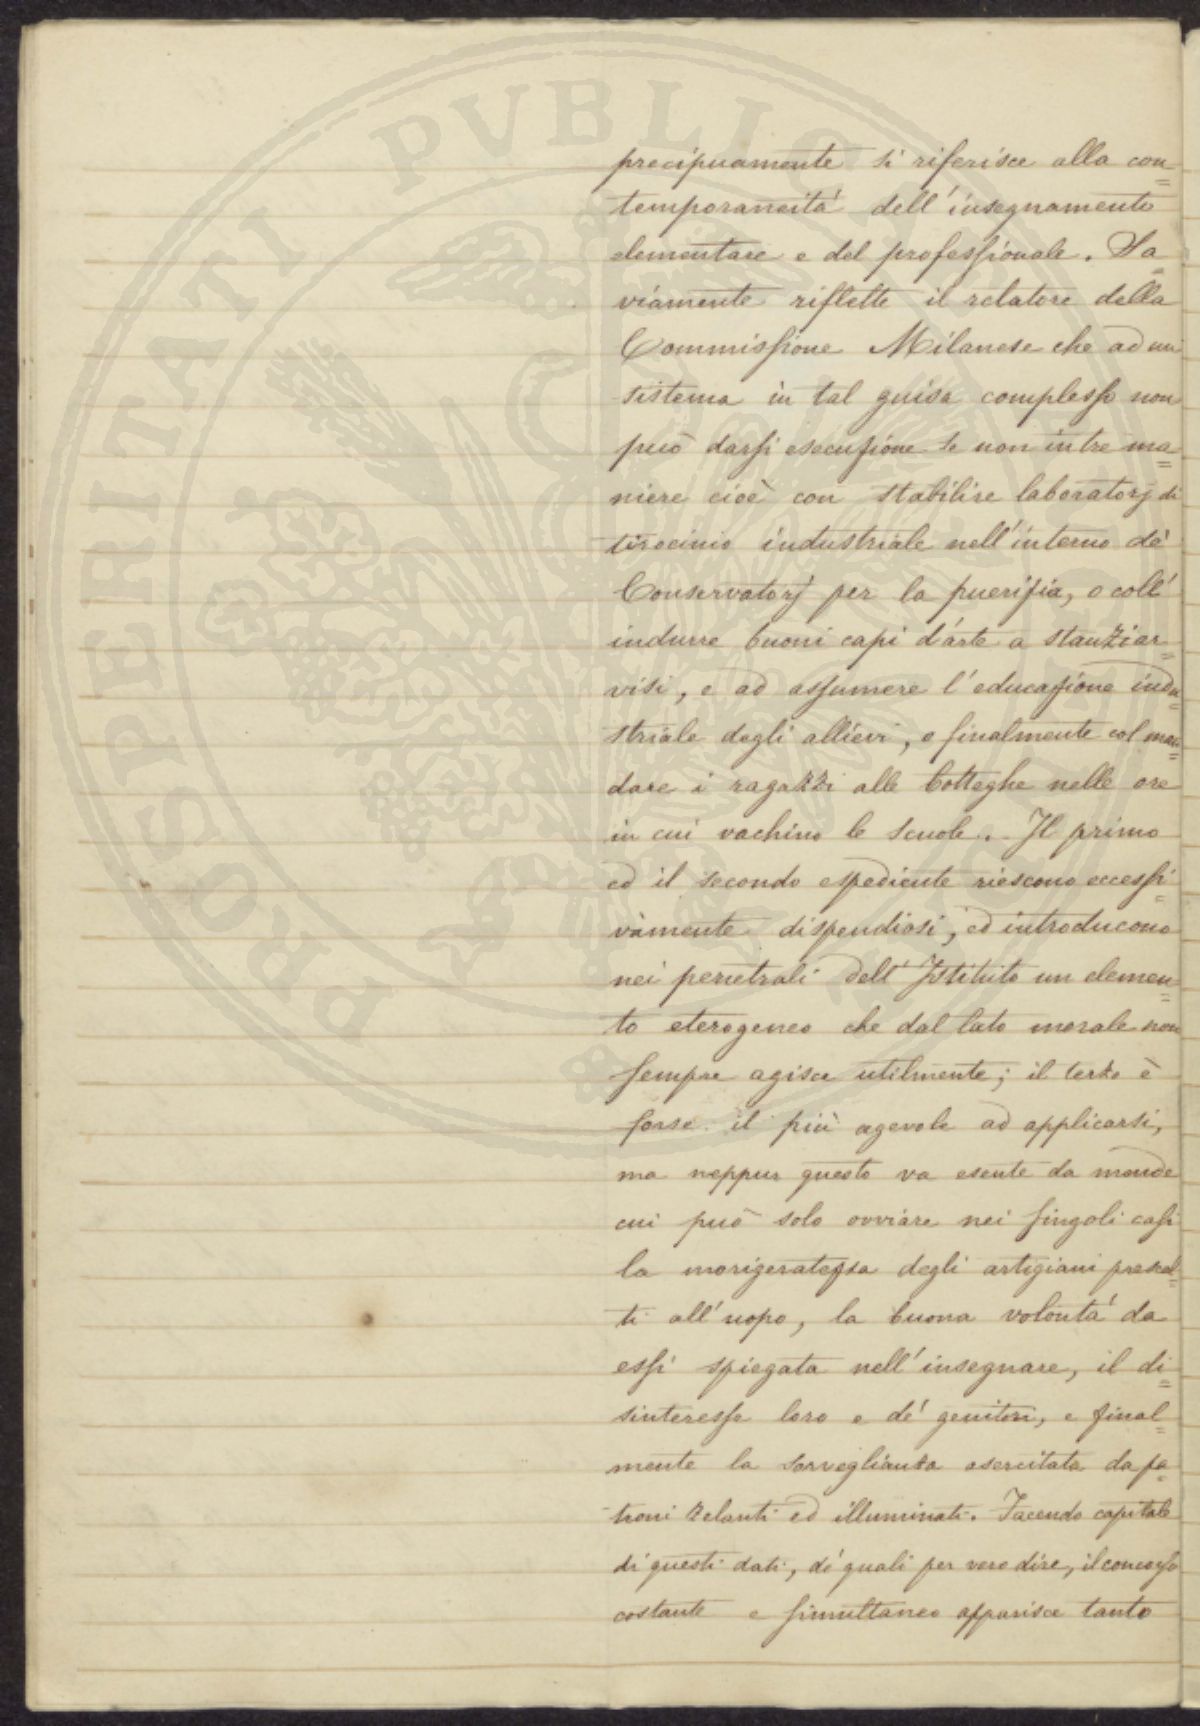 PROSPERITATI PVBLIC
precipuamente si riferisce alla con=
temporaneità dell'insegnamento
elementare e del professionale. Sa=
viamente riflette il relatore della
Commissione Milanese che ad un
sistema in tal guisa complesso non
può darsi esecuzione se non in tre ma=
niere cioè con stabilire laboratorj di
tirocinio industriale nell'interno de'
Conservatorj per la puerizia, o coll'
indurre buoni capi d'arte a stanziar=
visi, e ad assumere l'educazione indu=
striale degli allievi, o finalmente col man=
dare i ragazzi alle botteghe nelle ore
in cui vachino le scuole. Il primo
ed il secondo espediente riescono eccessi=
vamente dispendiosi, ed introducono
nei penetrali dell'Istituto un elemen=
to eterogeneo che dal lato morale non
sempre agisce utilmente; il terzo è
forse il più agevole ad applicarsi,
ma neppur questo va esente da mende
cui può solo ovviare nei singoli casi
la morigeratezza degli artigiani prescel=
ti all'uopo, la buona volontà da
essi spiegata nell'insegnare, il di=
sinteresse loro e de' genitori, e final=
mente la sorveglianza esercitata da pa=
troni zelanti ed illuminati. Facendo capitale
di questi dati, de' quali per vero dire, il concorso
costante e simultaneo apparisce tanto